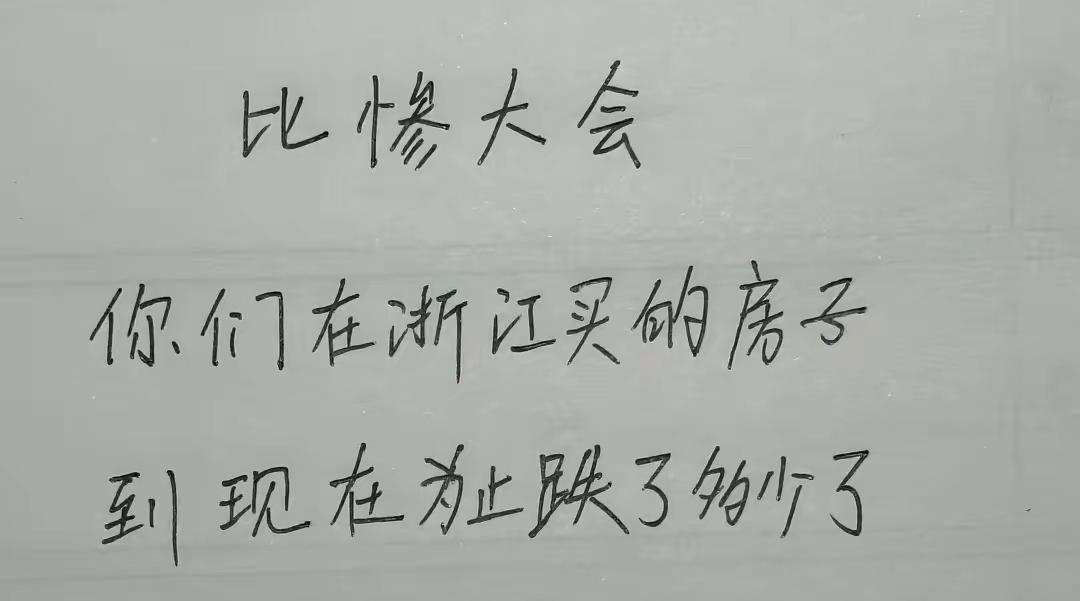 比惨大会
你们在浙江买的房子
到现在为止跌了多少了